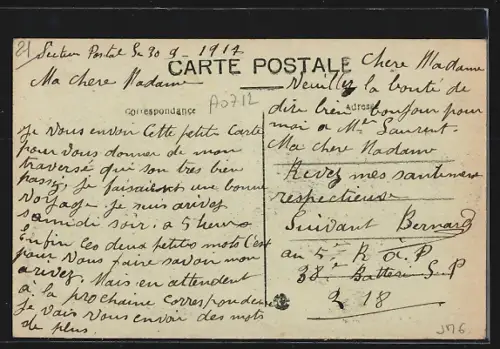 21
Secteur Postal le 30 9 - 1917
CARTE POSTALE
Ma chere Madame
Correspondance
A0712
Je vous envoi Cette petit Carte
pour vous donner de mon
traversé qui son tres bien
passé, Je faisaient une bonne
voyage Je suis arivez
samidi soir. a 5 heurs
Enfin Ces deux petits mots C'est
pour vous faire savoir mon
arivez. Mais en attendent
à la prochaine Correspondense
Je vais vous envoi des mots
de plus.
Chere Madame
Veuillez la bonté de
Adresse
dire bien bonjour pour
moi a Mer Laurent.
Ma chere Madame
Revez mes santement
respectieuse
Suivant Bernard
au 5e R. a. P
38e Batteri S. P
218
JM6